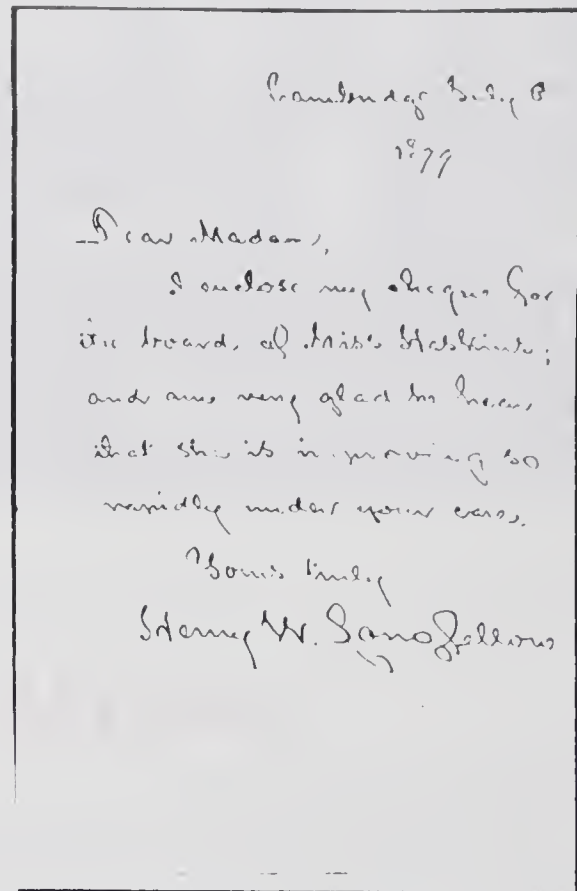 Cambridge July 8
1879
Dear Madam,
I enclose my cheque for
the board, of Miss
and am very glad to hear
that she is improving so
rapidly under your care.
Yours truly
Henry W. Longfellow